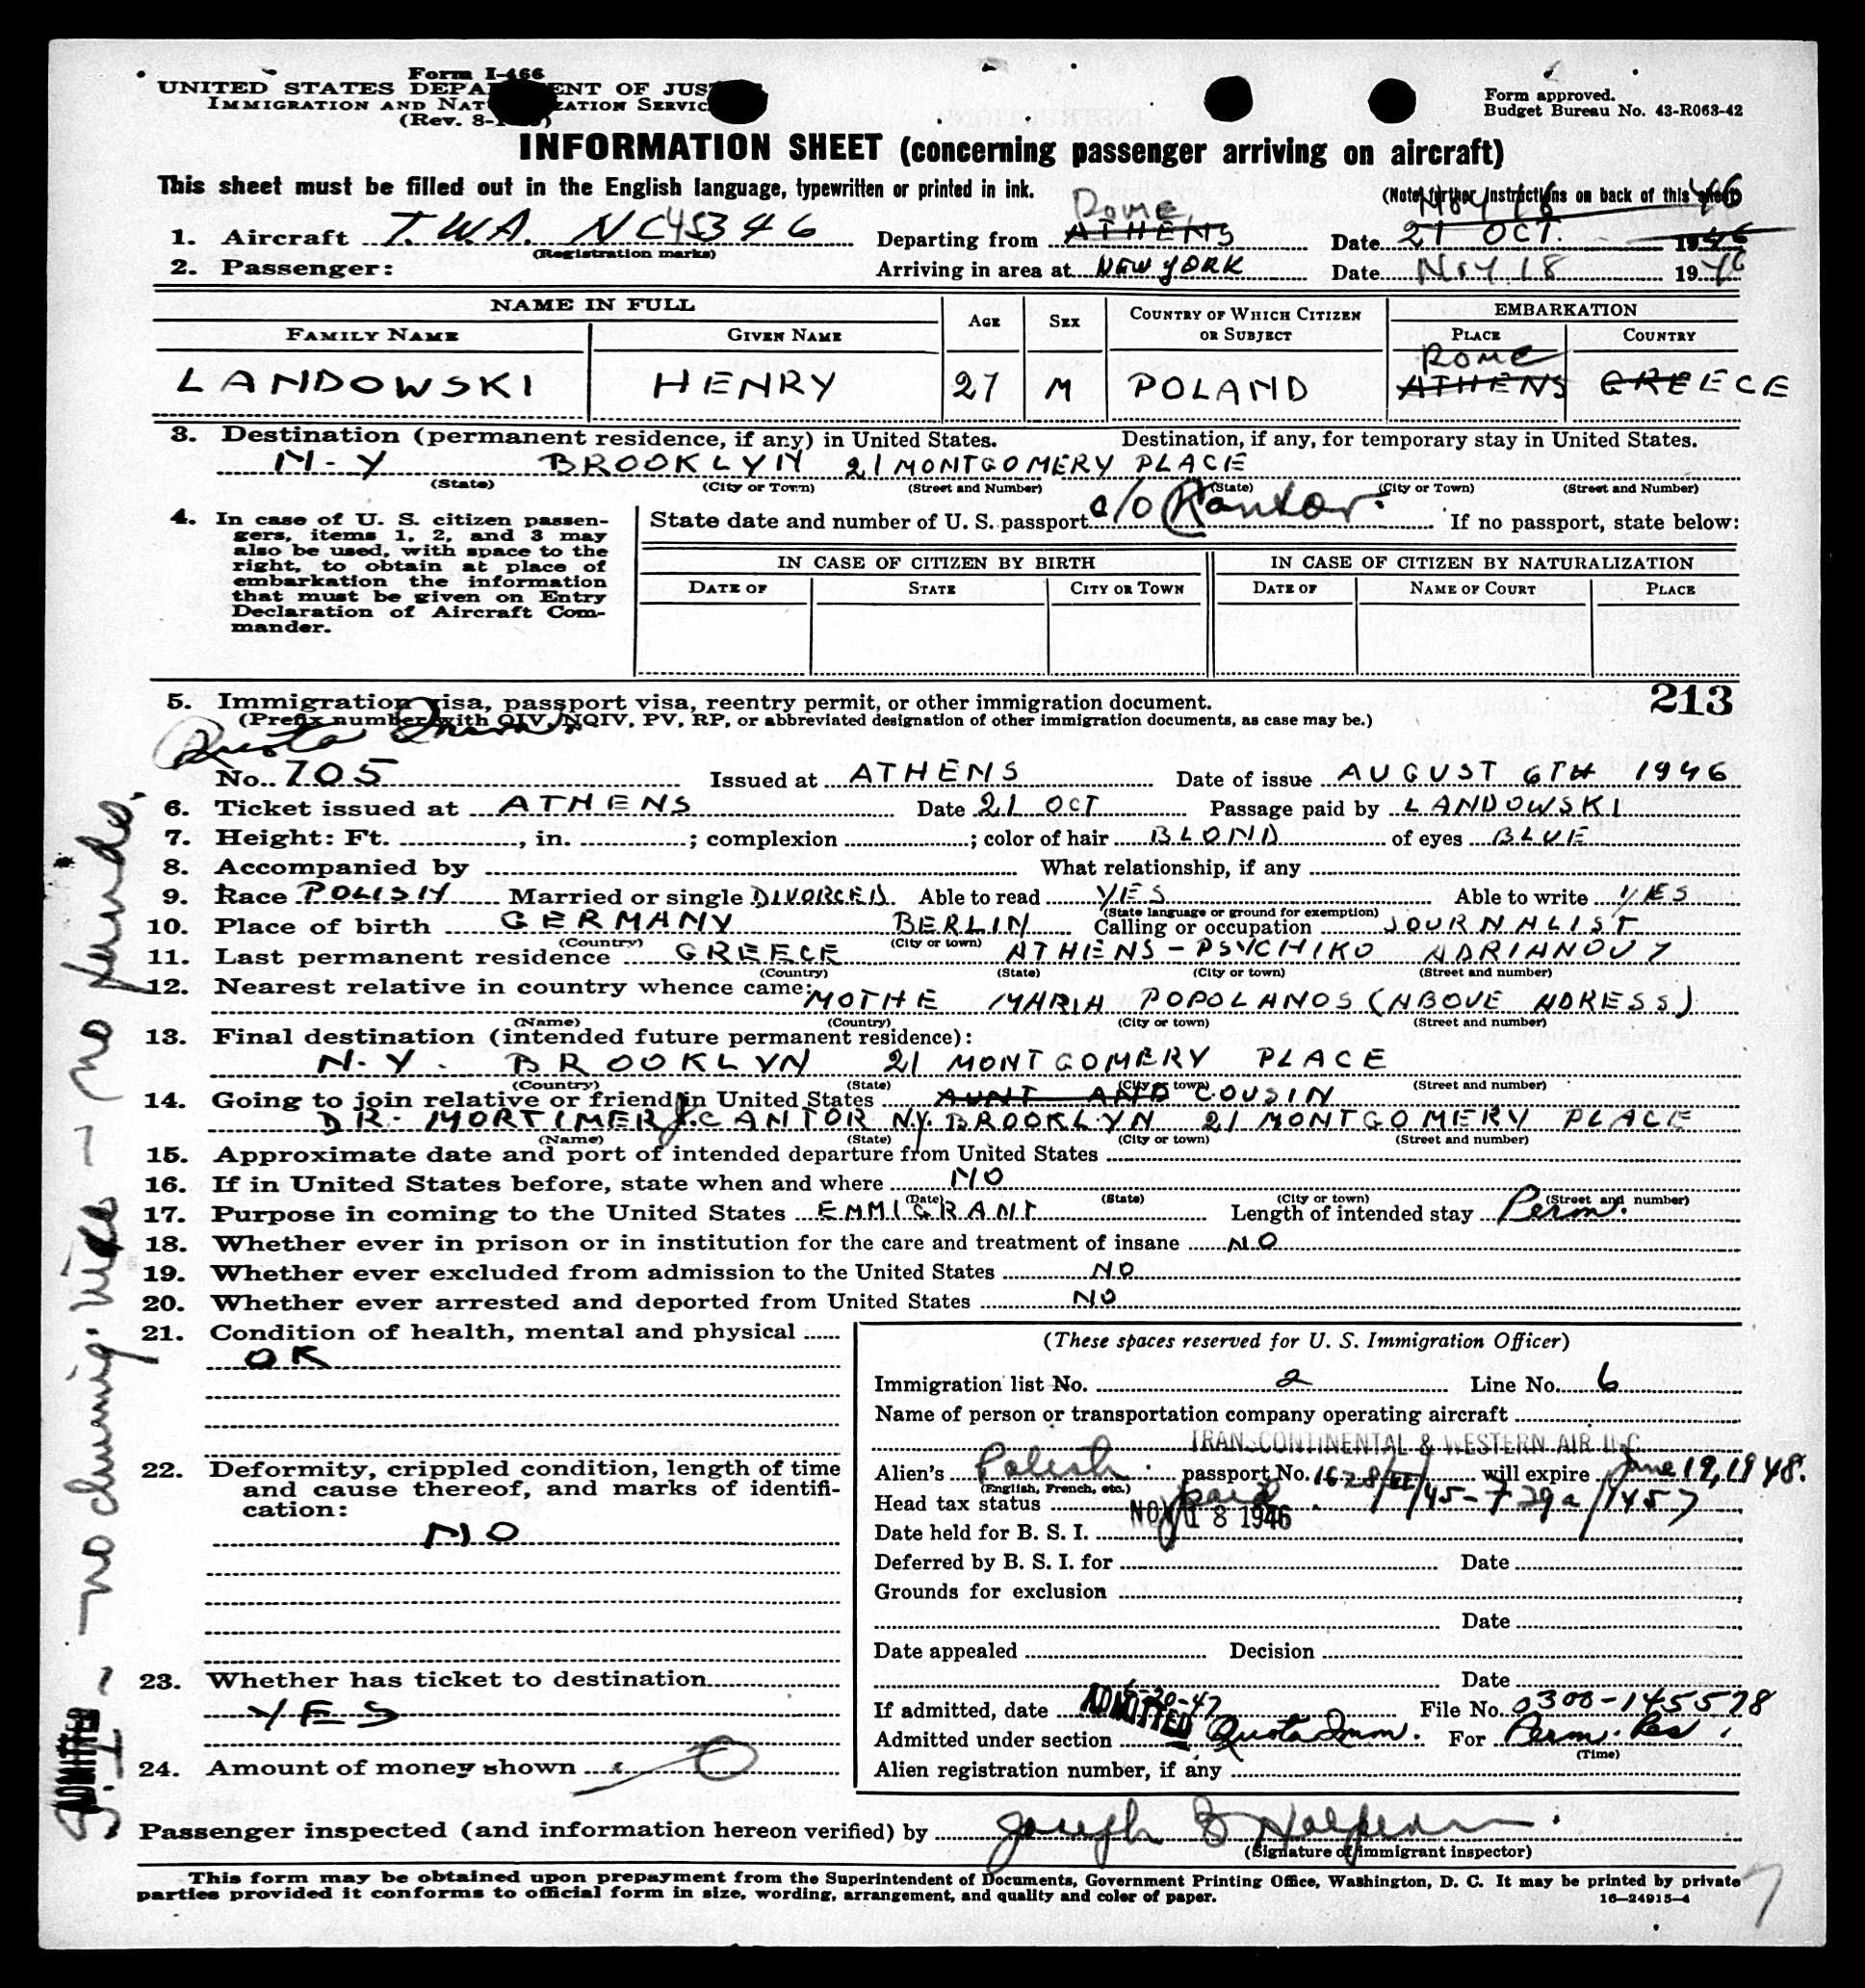 Form I-466
UNITED STATES DEPARTMENT OF JUSTICE
IMMIGRATION AND NATURALIZATION SERVICE
(Rev. 8-
Form approved.
Budget Bureau No. 43-R063-42
INFORMATION SHEET (concerning passenger arriving on aircraft)
This sheet must be filled out in the English language, typewritten or printed in ink.
(Note further instructions on back of this sheet)
Rome, Nov 16 46
1. Aircraft T.W.A. NC45346 Departing from ATHENS Date 21 OCT. 1946
(Registration marks)
2. Passenger: Arriving in area at NEW YORK Date Nov. 18 1946
NAME IN FULL AGE SEX COUNTRY OF WHICH CITIZEN OR SUBJECT EMBARKATION
FAMILY NAME GIVEN NAME PLACE COUNTRY
Rome
LANDOWSKI HENRY 27 M POLAND ATHENS GREECE
3. Destination (permanent residence, if any) in United States. Destination, if any, for temporary stay in United States.
N-Y BROOKLYN 21 MONTGOMERY PLACE
(State) (City or Town) (Street and Number) (State) (City or Town) (Street and Number)
4. In case of U. S. citizen passengers, items 1, 2, and 3 may also be used, with space to the right, to obtain at place of embarkation the information that must be given on Entry Declaration of Aircraft Commander.
State date and number of U. S. passport c/o Kantor. If no passport, state below:
IN CASE OF CITIZEN BY BIRTH IN CASE OF CITIZEN BY NATURALIZATION
DATE OF STATE CITY OR TOWN DATE OF NAME OF COURT PLACE
213
5. Immigration visa, passport visa, reentry permit, or other immigration document.
(Prefix number with QIV, NQIV, PV, RP, or abbreviated designation of other immigration documents, as case may be.)
Quota Imm.
No. 705 Issued at ATHENS Date of issue AUGUST 6TH 1946
6. Ticket issued at ATHENS Date 21 OCT Passage paid by LANDOWSKI
7. Height: Ft. , in. ; complexion ; color of hair BLOND of eyes BLUE
8. Accompanied by What relationship, if any
9. Race POLISH Married or single DIVORCED Able to read YES Able to write YES
(State language or ground for exemption)
10. Place of birth GERMANY BERLIN Calling or occupation JOURNALIST
(Country) (City or town)
11. Last permanent residence GREECE ATHENS-PSYCHIKO ADRIANOU 7
(Country) (State) (City or town) (Street and number)
12. Nearest relative in country whence came:
MOTHE MARIA POPOLANOS (ABOVE ADRESS)
(Name) (Country) (City or town) (Street and number)
13. Final destination (intended future permanent residence):
N.Y. BROOKLYN 21 MONTGOMERY PLACE
(Country) (State) (City or town) (Street and number)
14. Going to join relative or friend in United States AUNT AND COUSIN
DR. MORTIMER J. CANTOR N.Y. BROOKLYN 21 MONTGOMERY PLACE
(Name) (State) (City or town) (Street and number)
15. Approximate date and port of intended departure from United States
16. If in United States before, state when and where NO
(Date) (State) (City or town) (Street and number)
17. Purpose in coming to the United States EMMIGRANT Length of intended stay Perm.
18. Whether ever in prison or in institution for the care and treatment of insane NO
19. Whether ever excluded from admission to the United States NO
20. Whether ever arrested and deported from United States NO
21. Condition of health, mental and physical
OK
22. Deformity, crippled condition, length of time and cause thereof, and marks of identification:
NO
23. Whether has ticket to destination
YES
24. Amount of money shown 0
(These spaces reserved for U. S. Immigration Officer)
Immigration list No. 2 Line No. 6
Name of person or transportation company operating aircraft
TRANSCONTINENTAL & WESTERN AIR INC
Alien's Polish passport No. 1628/III/45-729a/1457 will expire June 19, 1948.
(English, French, etc.)
Head tax status paid
NOV 18 1946
Date held for B. S. I.
Deferred by B. S. I. for Date
Grounds for exclusion
Date
Date appealed Decision
Date
If admitted, date 5-20-47 ADMITTED File No. 0300-145578
Admitted under section Quota Imm. For Perm. Res.
(Time)
Alien registration number, if any
Passenger inspected (and information hereon verified) by Joseph B Halpern
(Signature of immigrant inspector)
This form may be obtained upon prepayment from the Superintendent of Documents, Government Printing Office, Washington, D. C. It may be printed by private
parties provided it conforms to official form in size, wording, arrangement, and quality and color of paper. 16—24915-4
ADMITTED
no funds.